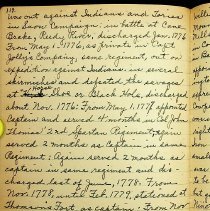 110.
out against Indians and Tories
in Snow Campaign; in battle at Cane
Brake, Reedy River, discharged Jan. 1776.
From May 1, 1776, as private in Capt
Jolly's Company, same regiment, out on
expedition against Indians in several
defeated the savages
at Hole or Black Hole, discharged
about Nov. 1776; From May 1, 1777 appointed
Captain and served 4 months in Col. John
Thomas' 2nd Spartan Regiment; again
served 2 months as Captain in same
Regiment; Again served 2 months as
captain in same regiment and dis-
charged last of June, 1778. From
Nov. 1778, until Feb. 1779, stationed at
Thomas's Fort, as captain; From Nov